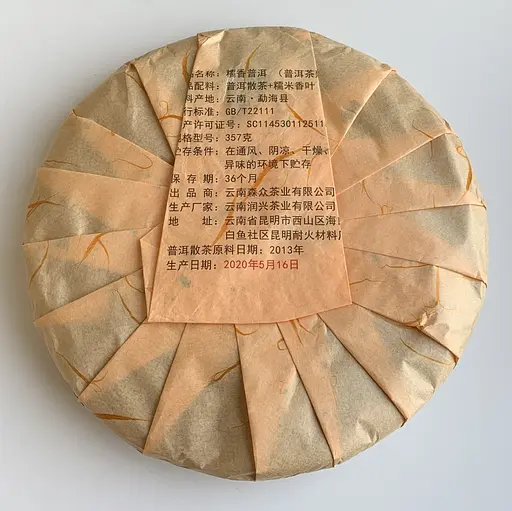 品名称: 糯香普洱 (普洱茶
品配料: 普洱散茶+糯米香叶
料产地: 云南·勐海县
行标准: GB/T22111
产许可证号: SC114530112511
格型号: 357克
存条件: 在通风、阴凉、干燥、
异味的环境下贮存
保 存 期: 36个月
出 品 商: 云南森众茶业有限公司
生产厂家: 云南润兴茶业有限公司
地 址: 云南省昆明市西山区海
白鱼社区昆明耐火材料
普洱散茶原料日期: 2013年
生产日期: 2020年5月16日